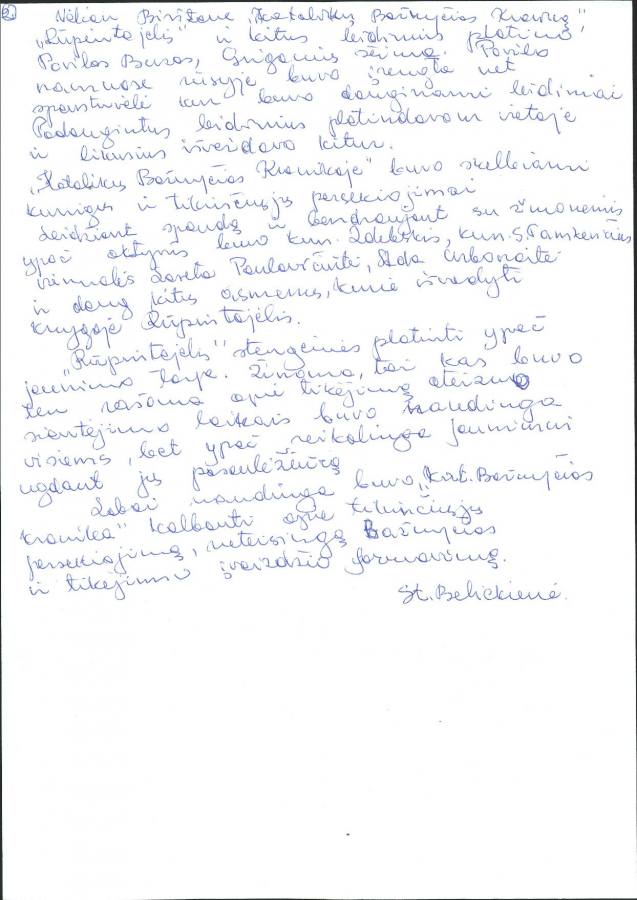 2.
Vėliau Birštone „Katalikų Bažnyčios Kroniką"
„Rūpintojėlis" ir kitus leidinius platino
Povilas Buzas, Grigonių šeima. Povilo
namuose rūsyje buvo įrengta net
spaustuvėlė kur buvo dauginami leidiniai
Padaugintus leidinius platindavom vietoje
ir likusius išveždavo kitur.
„Katalikų Bažnyčios Kronikoje" buvo skelbiami
kunigų ir tikinčiųjų persekiojimai
Leidžiant spaudą ir bendraujant su žmonėmis
ypač aktyvūs buvo kun. Zdebskis, kun. S. Tamkevičius
vienuolės Loreta Paulavičiūtė, Ada Urbonaitė
ir daug kitų asmenų, kurie išvardyti
knygoje Rūpintojėlis.
„Rūpintojėlis" stengėmės platinti ypač
jaunimo tarpe. Žinoma, tai kas buvo
ten rašoma apie tikėjimą ateizmo
siautėjimo laikais buvo naudinga
visiems, bet ypač reikalinga jaunimui
ugdant jų pasaulėžiūrą
Labai naudinga buvo „Kat. Bažnyčios
Kronika" kalbanti apie tikinčiųjų
persekiojimą, neteisingą Bažnyčios
ir tikėjimo įvaizdžio formavimą.
St. Belickienė.